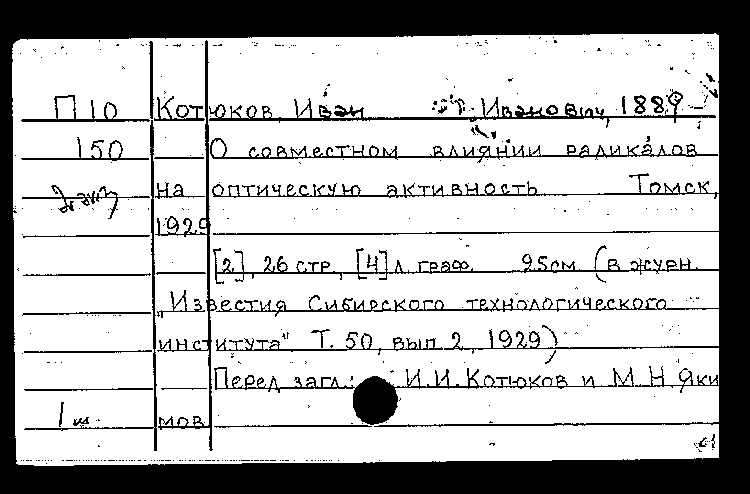 П 10 Котюков, Иван Иванович, 1889 -
150 О совместном влиянии радикалов
2 экз на оптическую активность Томск,
1929
[2], 26 стр., [4] л. граф. 25см (в журн.
„Известия Сибирского технологического
института" Т. 50, вып 2, 1929)
Перед загл.: И.И. Котюков и М.Н. Яки
1 ш. мов